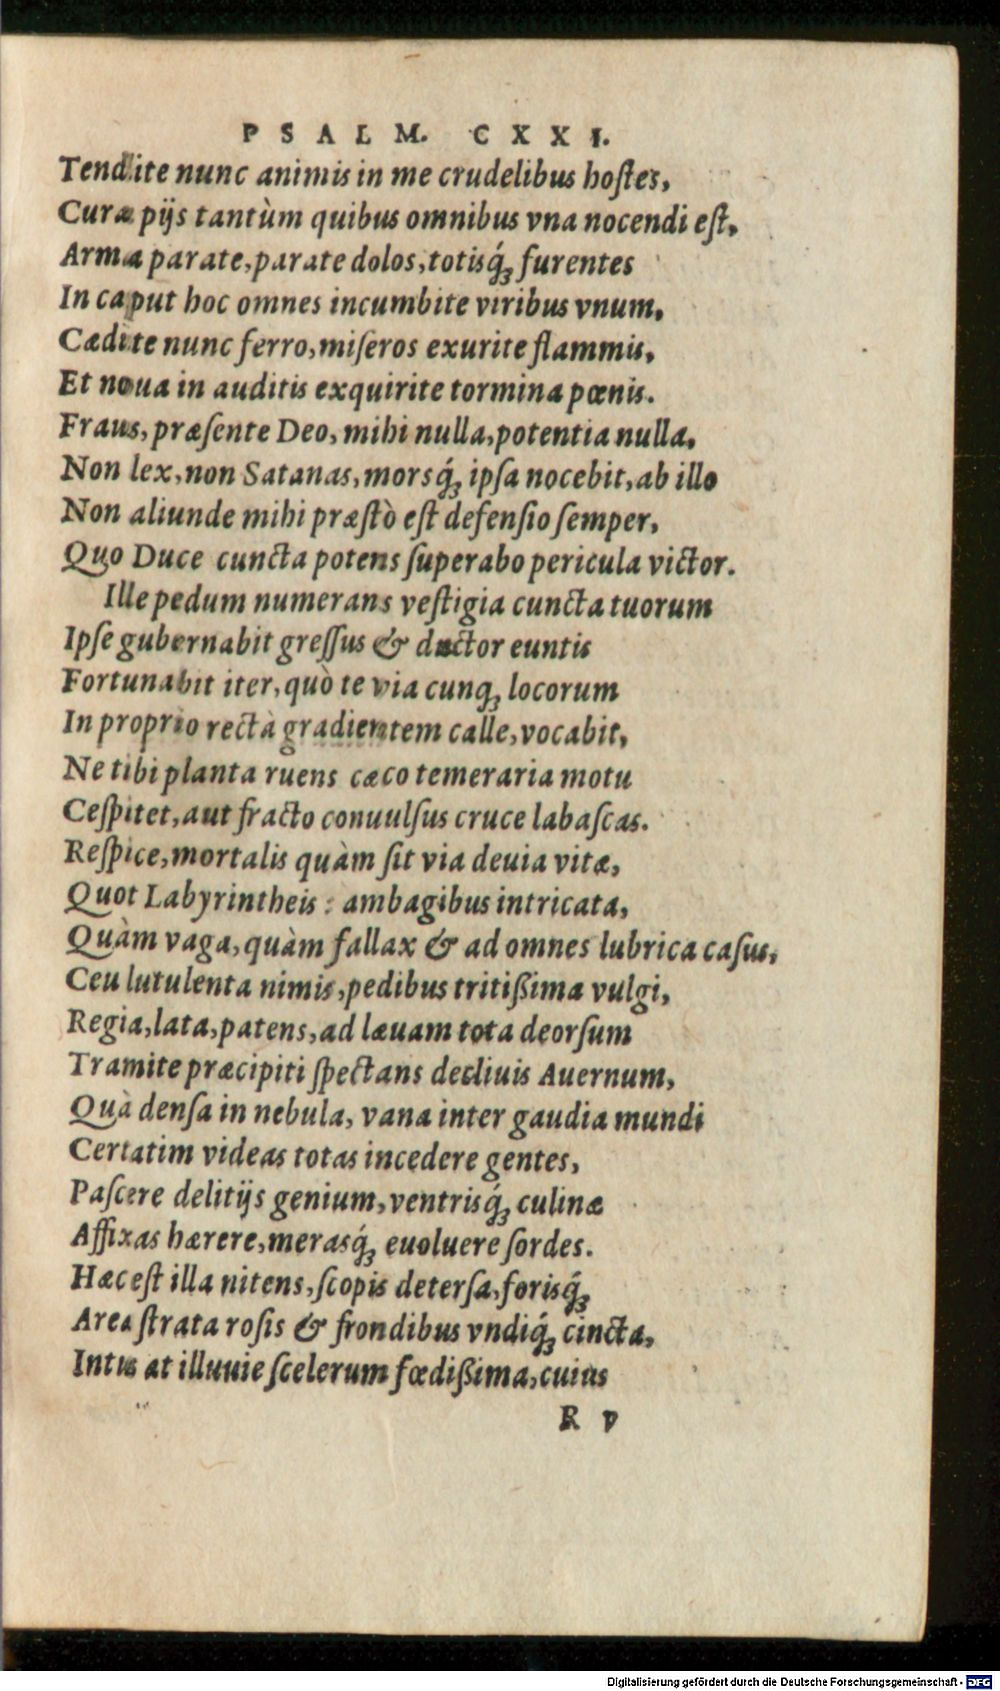 PSALM. CXXI.
Tendite nunc animis in me crudelibus hoſtes,
Curæ pijs tantùm quibus omnibus vna nocendi eſt,
Arma parate, parate dolos, totisq́; furentes
In caput hoc omnes incumbite viribus vnum,
Cædite nunc ferro, miſeros exurite flammis,
Et noua in auditis exquirite tormina pœnis.
Fraus, præſente Deo, mihi nulla, potentia nulla,
Non lex, non Satanas, morsq́; ipſa nocebit, ab illo
Non aliunde mihi præſtò eſt defenſio ſemper,
Quo Duce cuncta potens ſuperabo pericula victor.
Ille pedum numerans veſtigia cuncta tuorum
Ipſe gubernabit greſſus & ductor euntis
Fortunabit iter, quò te via cunq; locorum
In proprio rectà gradientem calle, vocabit,
Ne tibi planta ruens cæco temeraria motu
Ceſpitet, aut fracto conuulſus cruce labaſcas.
Reſpice, mortalis quàm ſit via deuia vitæ,
Quot Labyrintheis : ambagibus intricata,
Quàm vaga, quàm fallax & ad omnes lubrica caſus,
Ceu lutulenta nimis, pedibus tritißima vulgi,
Regia, lata, patens, ad læuam tota deorſum
Tramite præcipiti ſpectans decliuis Auernum,
Quà denſa in nebula, vana inter gaudia mundi
Certatim videas totas incedere gentes,
Paſcere delitijs genium, ventrisq́; culinæ
Affixas hærere, merasq́; euoluere ſordes.
Hæc eſt illa nitens, ſcopis deterſa, forisq́;
Area ſtrata roſis & frondibus vndiq́; cincta,
Intus at illuuie ſcelerum fœdißima, cuius
R v
Digitalisierung gefördert durch die Deutsche Forschungsgemeinschaft - DFG